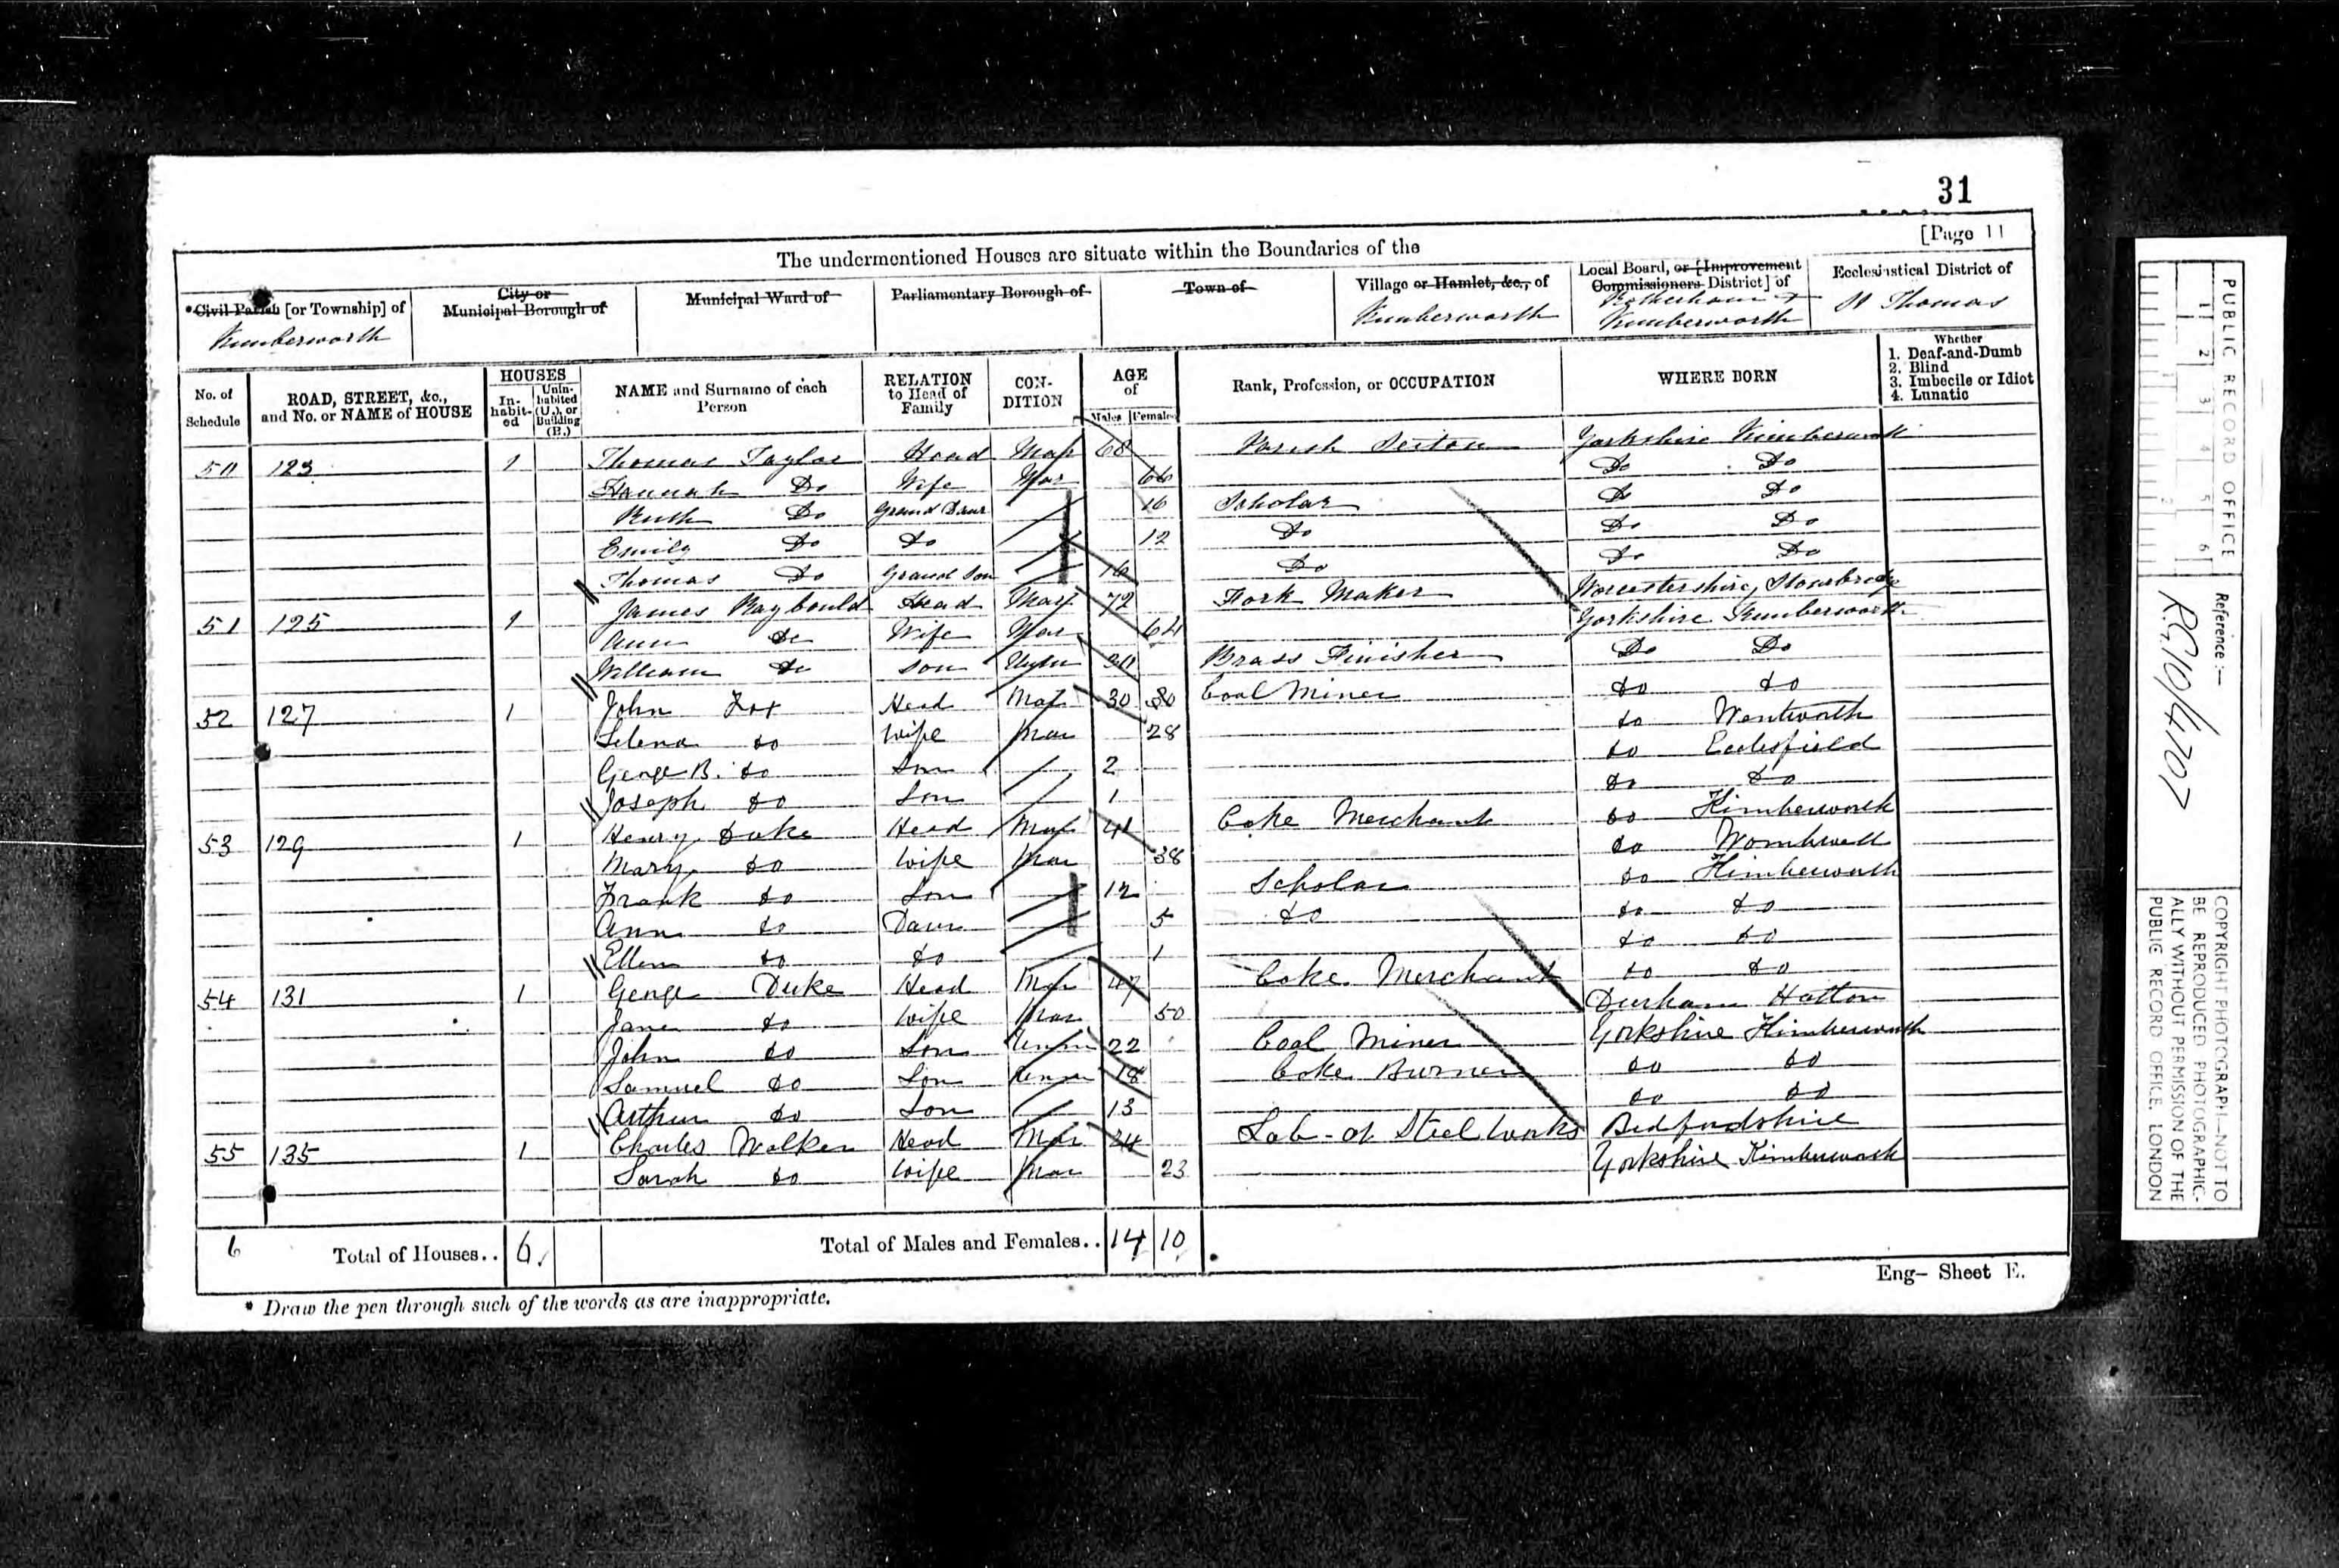 31
[Page 11
The undermentioned Houses are situate within the Boundaries of the
*Civil Parish [or Township] of
Kimberworth
City or
Municipal Borough of
Municipal Ward of
Parliamentary Borough of
Town of
Village or Hamlet, &c., of
Kimberworth
Local Board, or [Improvement
Commissioners District] of
Rotherham &
Kimberworth
Ecclesiastical District of
St Thomas
No. of Schedule
ROAD, STREET, &c., and No. or NAME of HOUSE
HOUSES
In-habit-ed
Unin-habited (U.), or Building (B.)
NAME and Surname of each Person
RELATION to Head of Family
CON-DITION
AGE of
Males Females
Rank, Profession, or OCCUPATION
WHERE BORN
Whether
1. Deaf-and-Dumb
2. Blind
3. Imbecile or Idiot
4. Lunatic
50 123 1 Thomas Taylor Head Mar 68 Parish Sexton Yorkshire Kimberworth
Hannah Do Wife Mar 66 Do Do
Ruth Do Grand Daur 16 Scholar Do Do
Emily Do Do 12 Do Do Do
Thomas Do Grand Son 16 Do Do Do
51 125 1 James Raybould Head Mar 72 Fork Maker Worcestershire, Stourbridge
Ann Do Wife Mar 64 Yorkshire Kimberworth
William Do Son 30 Brass Finisher Do Do
52 127 1 John Fox Head Mar 30 30 Coal Miner do do
Selena do Wife Mar 28 do Wentworth
George B. do Son 2 do Ecclesfield
Joseph do Son 1 do do
53 129 1 Henry Duke Head Mar 41 Coke Merchant do Kimberworth
Mary do Wife Mar 38 do Wombwell
Frank do Son 12 Scholar do Kimberworth
Ann do Daur 5 do do do
Ellen do do 1 do do
54 131 1 George Duke Head Mar 47 Coke Merchant do do
Jane do Wife Mar 50 Durham Hatton
John do Son Unm 22 Coal Miner Yorkshire Kimberworth
Samuel do Son Unm 18 Coke Burner do do
Arthur do Son 13 do do
55 135 1 Charles Walker Head Mar 24 Lab- at Steel Works Bedfordshire
Sarah do Wife Mar 23 Yorkshire Kimberworth
6 Total of Houses.. 6 Total of Males and Females.. 14 10
Eng- Sheet E.
* Draw the pen through such of the words as are inappropriate.
PUBLIC RECORD OFFICE
1 2 3 4 5 6
Reference:-
R.G. 10/4707
COPYRIGHT PHOTOGRAPH-NOT TO
BE REPRODUCED PHOTOGRAPHIC-
ALLY WITHOUT PERMISSION OF THE
PUBLIC RECORD OFFICE, LONDON